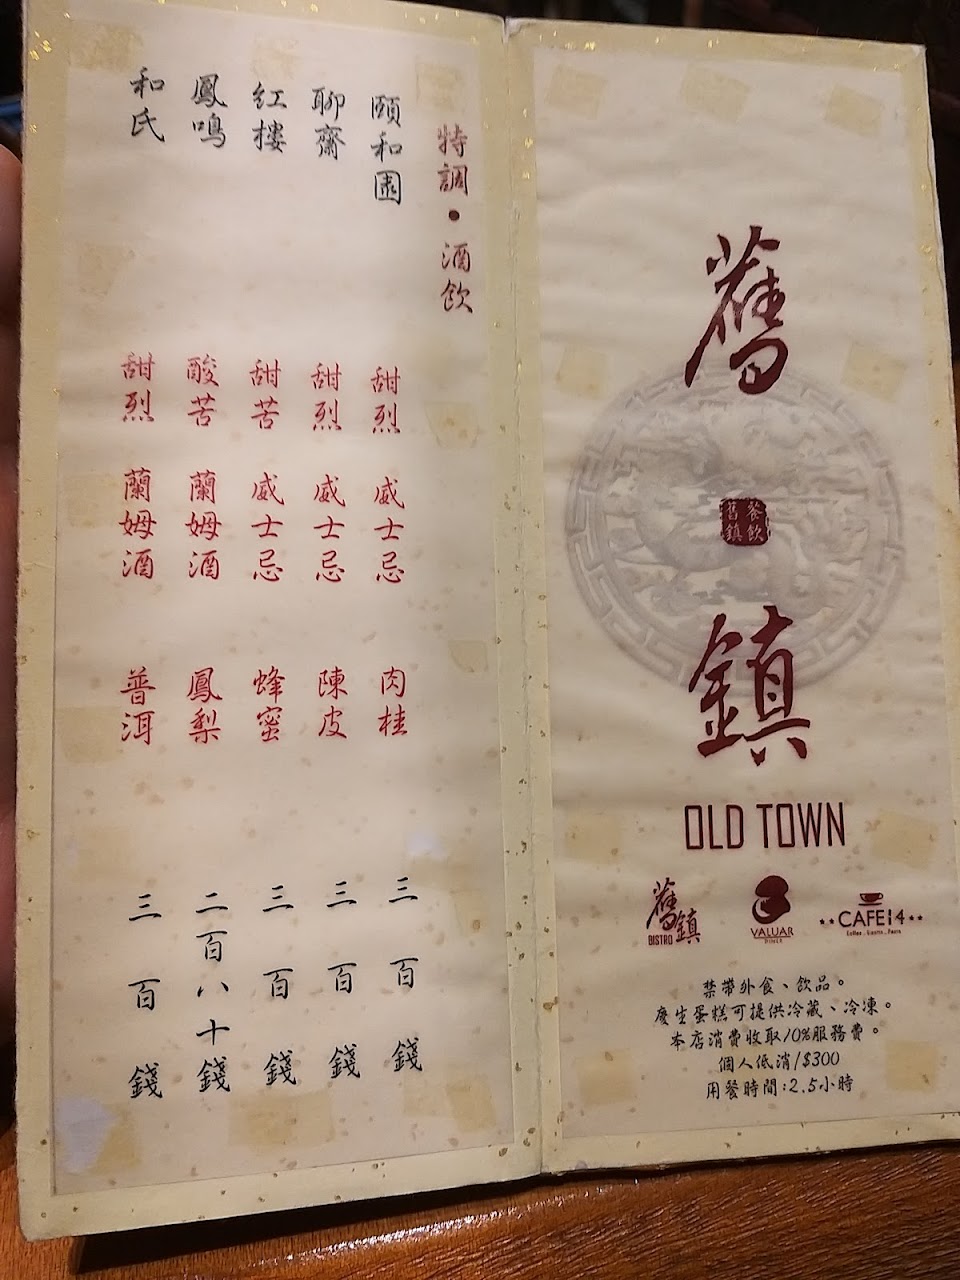 特調・酒飲
頤和園 甜烈 威士忌 肉桂 三百錢
聊齋 甜烈 威士忌 陳皮 三百錢
紅樓 甜苦 威士忌 蜂蜜 三百錢
鳳鳴 酸苦 蘭姆酒 鳳梨 二百八十錢
和氏 甜烈 蘭姆酒 普洱 三百錢
舊鎮
餐飲
舊鎮
OLD TOWN
舊鎮
BISTRO
VALUAR
DINER
CAFE14
禁帶外食、飲品。
慶生蛋糕可提供冷藏、冷凍。
本店消費收取10%服務費。
個人低消/$300
用餐時間:2.5小時